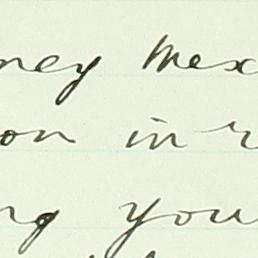 ney Mex
on in r
ng you